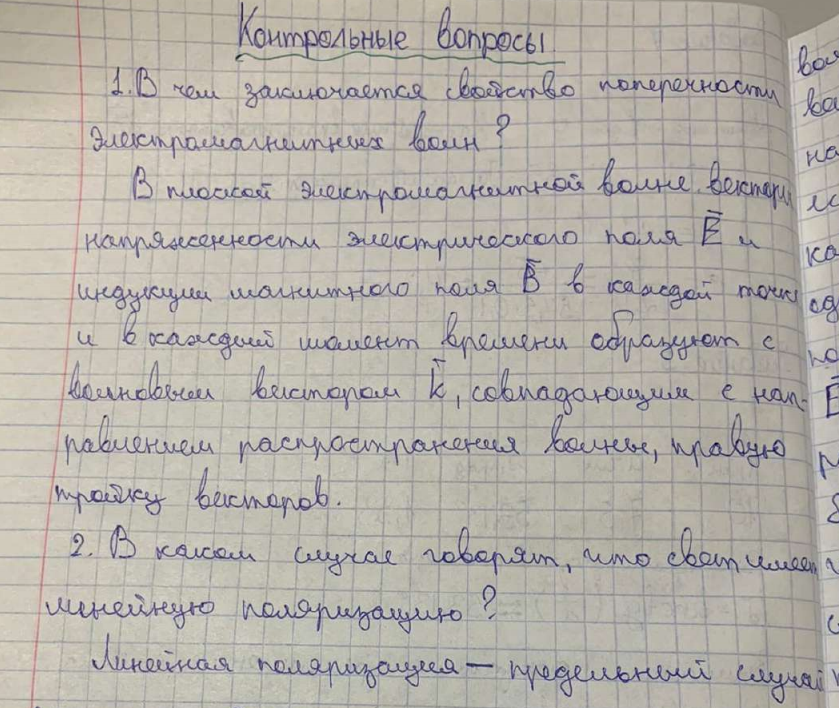 Контрольные вопросы
1. В чем заключается свойство поперечности
электромагнитных волн?
В плоской электромагнитной волне векторы
напряженности электрического поля E̅ и
индукции магнитного поля B̅ в каждой точке
и в каждый момент времени образуют с
волновым вектором k̅, совпадающим с нап-
равлением распространения волны, правую
тройку векторов.
2. В каком случае говорят, что свет имеет
линейную поляризацию?
Линейная поляризация — предельный случай